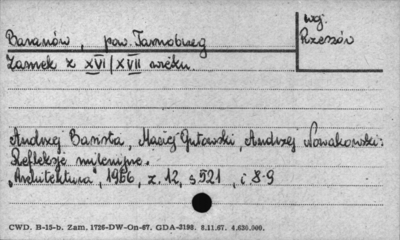 Baranów, pow. Tarnobrzeg
wg.
Rzeszów
Zamek z XVI/XVII wieku.
Andrzej Basista, Maciej Gutowski, Andrzej Nowakowski:
Refleksje milenijne.
"Architektura", 1966, z. 12, s 521, i. 8-9
CWD. B-15-b. Zam. 1726-DW-On-67. GDA-3198. 8.11.67. 4,630.000.